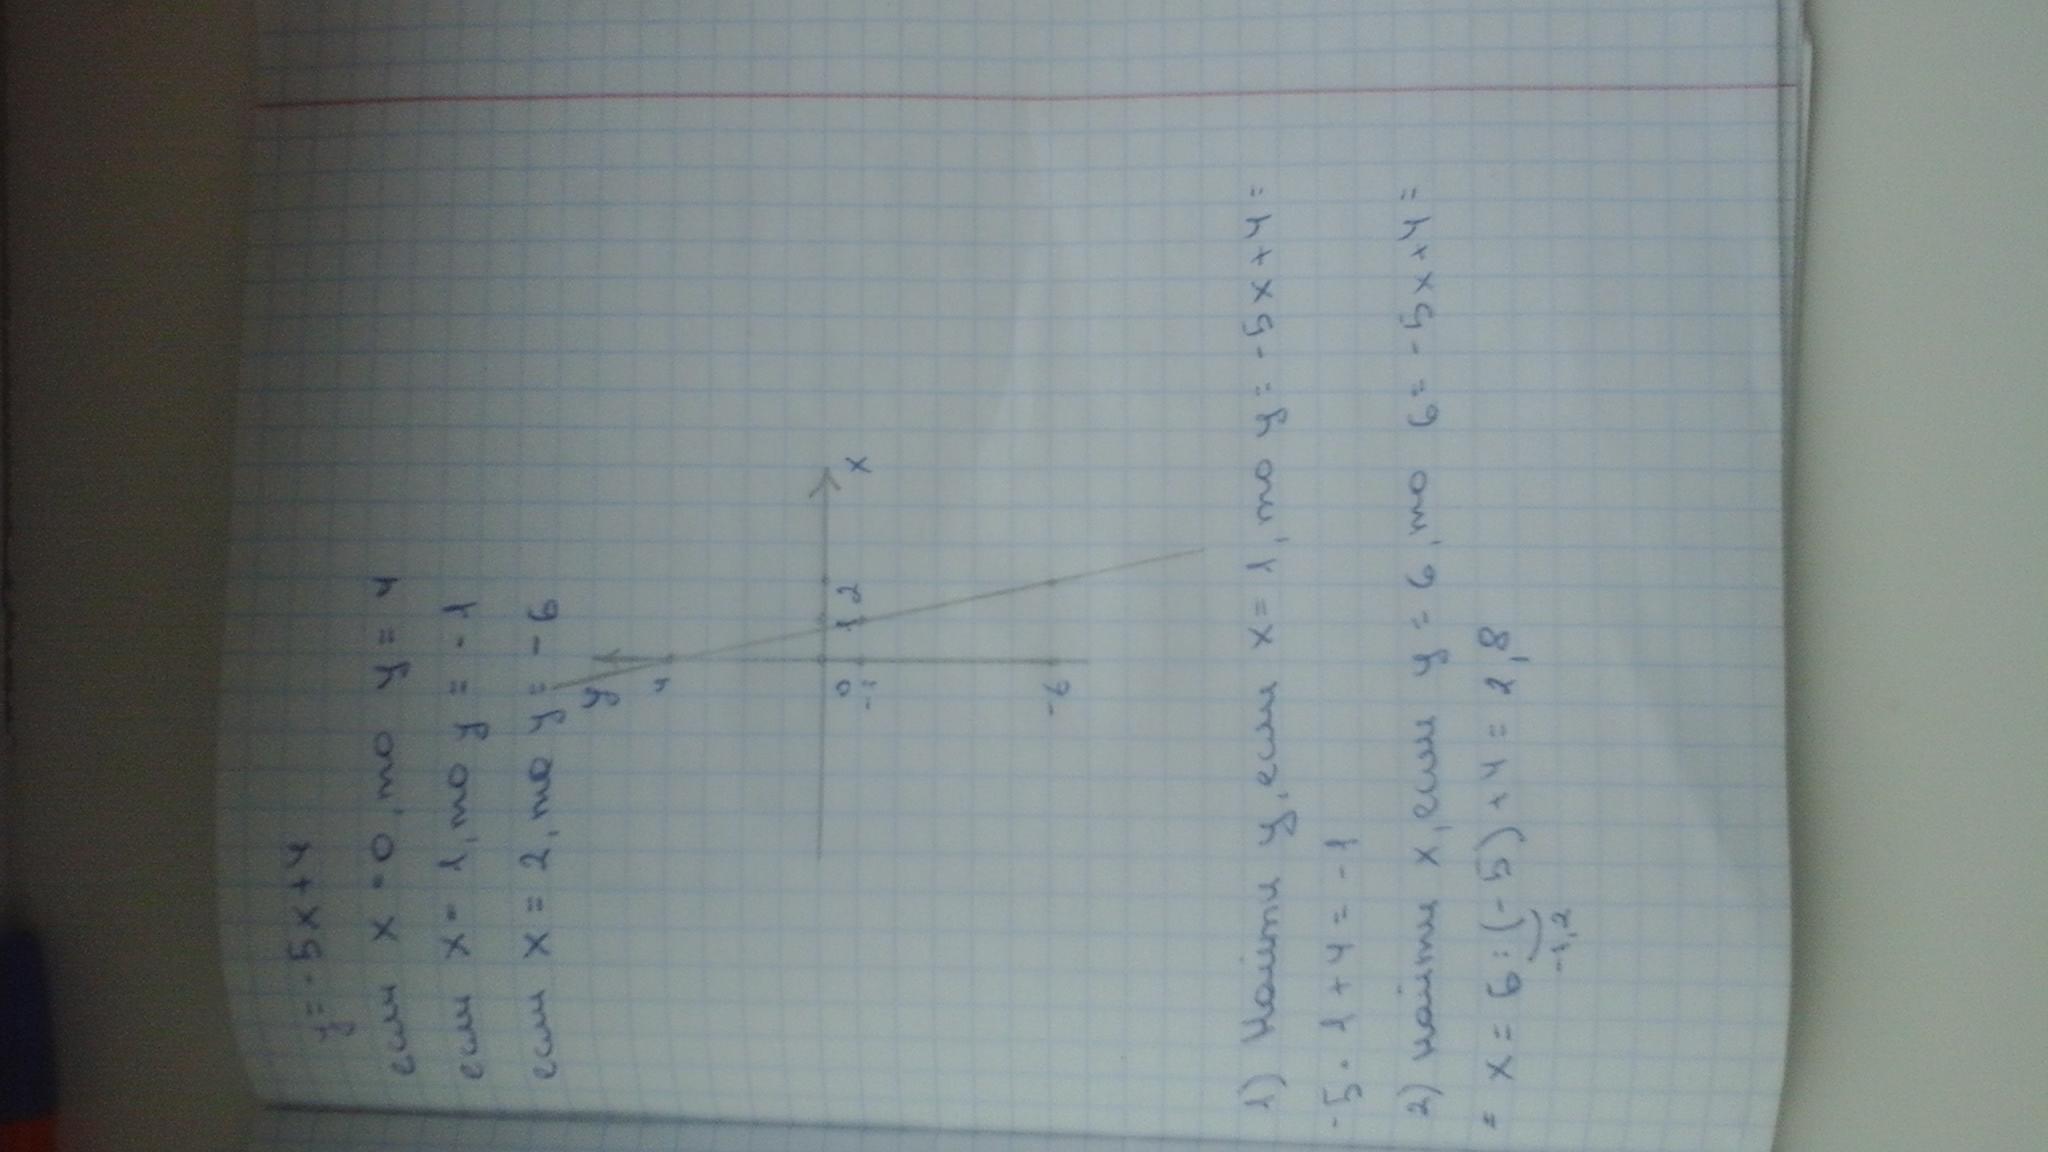 y = -5x+4
если x = 0, то y = 4
если x = 1, то y = -1
если x = 2, то y = -6
y
4
x
0
1
2
-1
-6
1) Найти y, если x = 1, то y = -5x+4 =
-5·1+4 = -1
2) найти x, если y = 6, то 6 = -5x+4 =
= x = 6:(-5)+4 = 2,8
-1,2